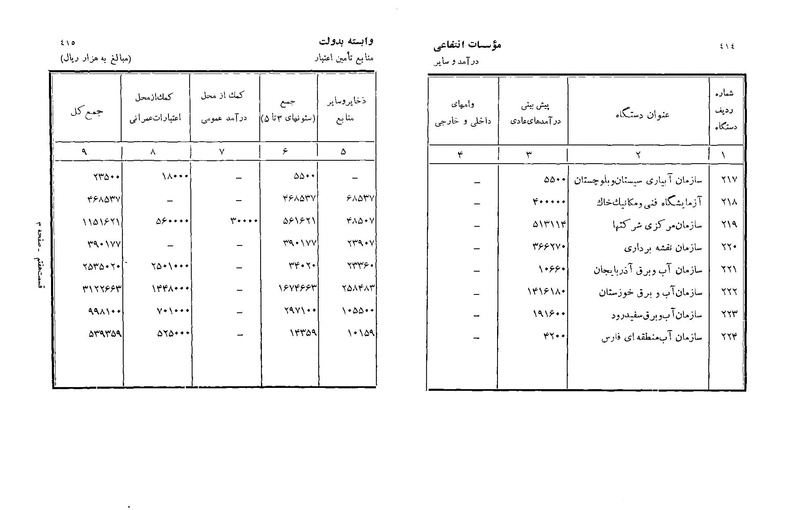 ۴۱۴
مؤسسات انتفاعی
درآمد و سایر
شماره ردیف دستگاه | عنوان دستگاه | پیش بینی درآمدهای عادی | وامهای داخلی و خارجی
۱ | ۲ | ۳ | ۴
۲۱۷ | سازمان آبیاری سیستان وبلوچستان | ۵۵۰۰ | –
۲۱۸ | آزمایشگاه فنی ومکانیك خاك | ۴۰۰۰۰۰ | –
۲۱۹ | سازمان مرکزی شرکتها | ۵۱۳۱۱۴ | –
۲۲۰ | سازمان نقشه برداری | ۳۶۶۲۷۰ | –
۲۲۱ | سازمان آب وبرق آذربایجان | ۱۰۶۶۰ | –
۲۲۲ | سازمان آب و برق خوزستان | ۱۴۱۶۱۸۰ | –
۲۲۳ | سازمان آب وبرق سفیدرود | ۱۹۱۶۰۰ | –
۲۲۴ | سازمان آب منطقه ای فارس | ۴۲۰۰ | –
وابسته بدولت
۴۱۵
منابع تأمین اعتبار
(مبالغ به هزار ریال)
ذخایر وسایر منابع | جمع (ستونهای ۳ تا ۵) | کمك از محل درآمد عمومی | کمك از محل اعتبارات عمرانی | جمع کل
۵ | ۶ | ۷ | ۸ | ۹
– | ۵۵۰۰ | – | ۱۸۰۰۰ | ۲۳۵۰۰
۶۸۵۳۷ | ۴۶۸۵۳۷ | – | – | ۴۶۸۵۳۷
۴۸۵۰۷ | ۵۶۱۶۲۱ | ۳۰۰۰۰ | ۵۶۰۰۰۰ | ۱۱۵۱۶۲۱
۲۳۹۰۷ | ۳۹۰۱۷۷ | – | – | ۳۹۰۱۷۷
۲۳۳۶۰ | ۳۴۰۲۰ | – | ۲۵۰۱۰۰۰ | ۲۵۳۵۰۲۰
۲۵۸۴۸۳ | ۱۶۷۴۶۶۳ | – | ۱۴۴۸۰۰۰ | ۳۱۲۲۶۶۳
۱۰۵۵۰۰ | ۲۹۷۱۰۰ | – | ۷۰۱۰۰۰ | ۹۹۸۱۰۰
۱۰۱۵۹ | ۱۴۳۵۹ | – | ۵۲۵۰۰۰ | ۵۳۹۳۵۹
قسمت هفتم - صفحه ۳